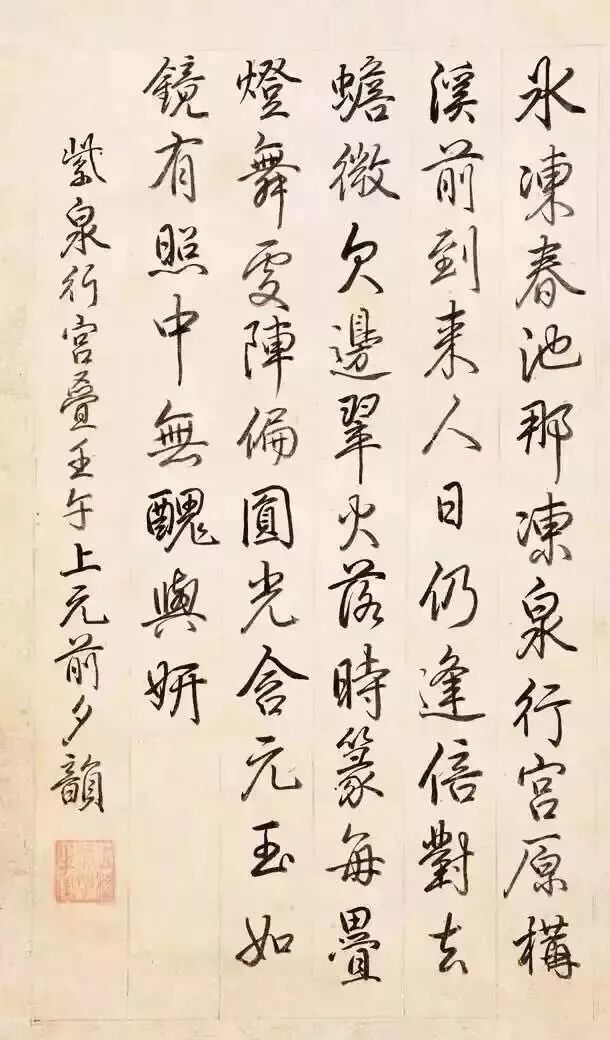 氷凍春池那凍泉行宮原構
溪前到来人日仍逢倍對去
蟾微欠邊翠火落時篆每疊
燈舞處陣偏圓光含元玉如
鏡有照中無醜與妍
紫泉行宮叠壬午上元前夕韻